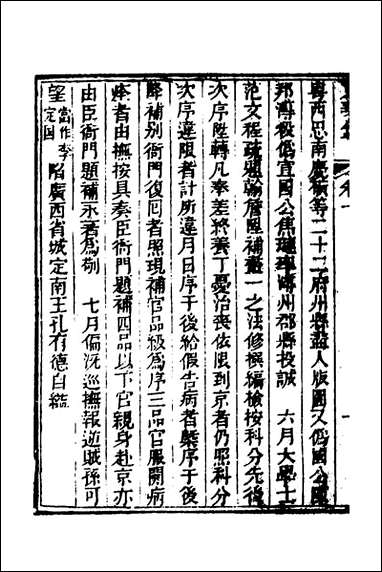 粵西思南慶等二十二府州縣盡入版圖又僞國公
邦傳投僞宜國公焦璉率州郡縣投誠　六月大學士
范文程疏題翰詹陞補畫一之法修撰編檢按科分先後
次序陞轉凡奉差終養丁憂治喪依限到京者仍照科分
次序違限者計所違月日序于後給假告病者槩序于後
降補別衙門復回者照現補官品級爲序三品官服闋病
痊者由撫按具奏臣衙門題補四品以下官親身赴京亦
由臣衙門題補永著爲例　七月偏沅巡撫報逆賊孫可
望當作李定国陷廣西省城定南王孔有德自縊